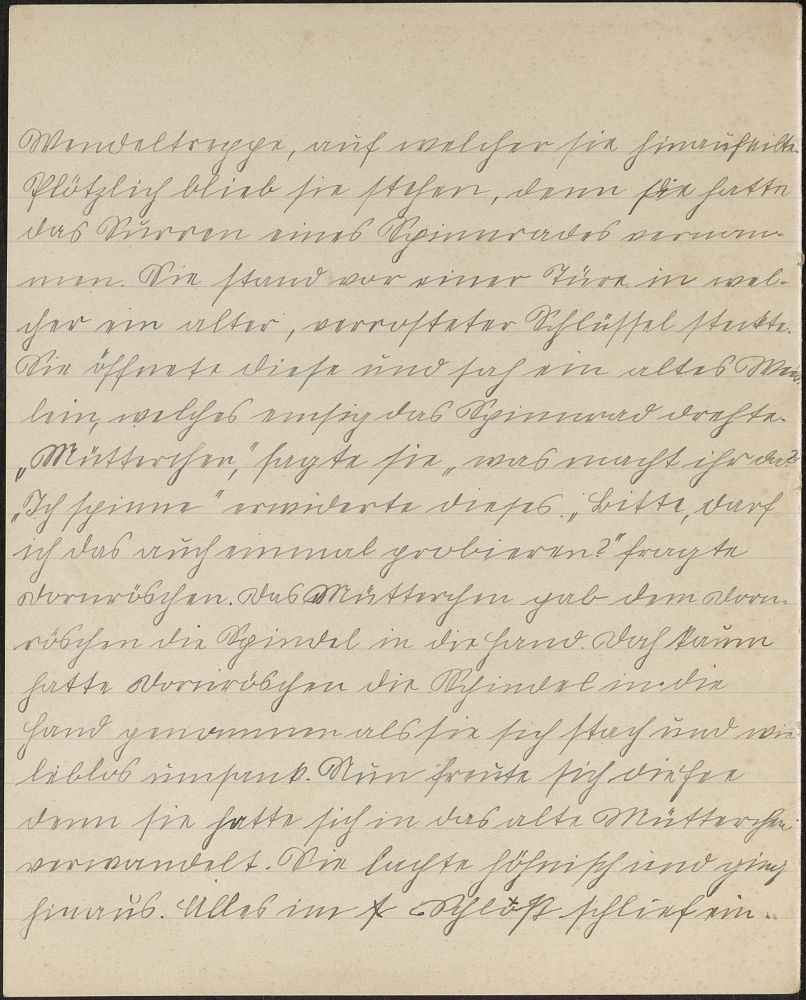 Wendeltreppe, auf welcher sie hinaufeilte.
Plötzlich blieb sie stehen, denn sie hatte
das Surren eines Spinnrades vernom-
men. Sie stand vor einer Türe in wel-
cher ein alter, verrosteter Schlüssel steckte.
Sie öffnete diese und sah ein altes Weib-
lein, welches emsig das Spinnrad drehte.
„Mütterchen," sagte sie „was macht ihr da?
„Ich spinne" erwiderte dieses. „Bitte, darf
ich das auch einmal probieren?" fragte
Dornröschen. Das Mütterchen gab dem Dorn-
röschen die Spindel in die Hand. Doch kaum
hatte Dornröschen die Spindel in die
Hand genommen als sie sich stach und wie
leblos umsank. Nun freute sich die Fee
denn sie hatte sich in das alte Mütterchen
verwandelt. Sie lachte höhnisch und ging
hinaus. Alles im Schloß schlief ein.